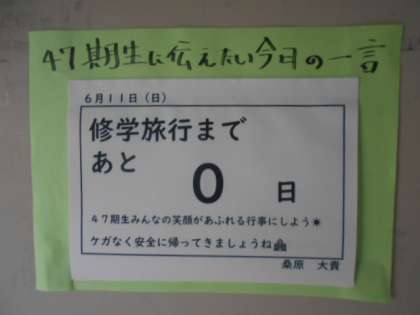 47期生に伝えたい今日の一言
6月11日(日)
修学旅行まで
あと
0 日
47期生みんなの笑顔があふれる行事にしよう☀
ケガなく安全に帰ってきましょうね
桑原 大貴